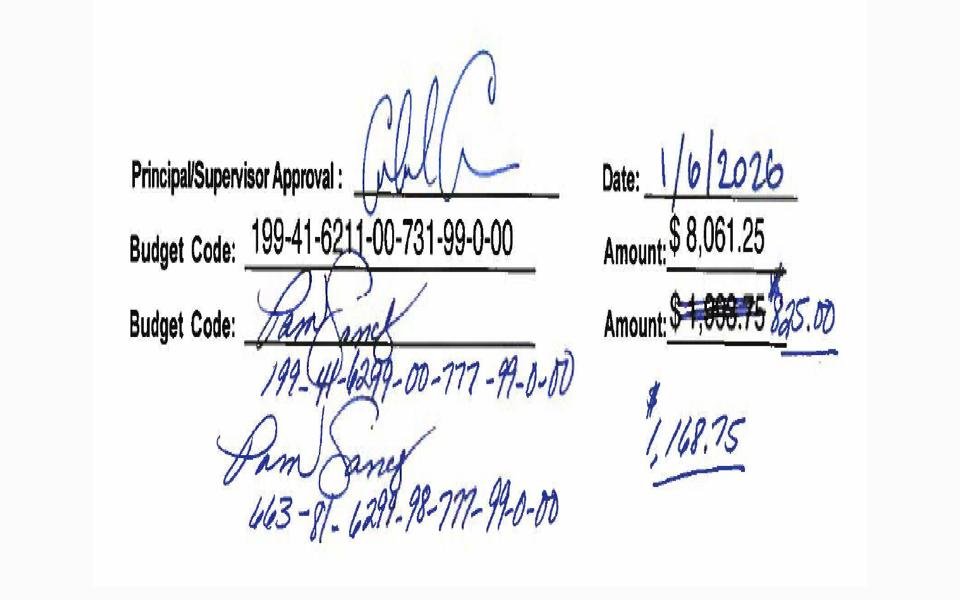 Principal/Supervisor Approval : Date: 1/6/2026
Budget Code: 199-41-6211-00-731-99-0-00 Amount: $ 8,061.25
Budget Code: Pam Amount: $825.00
199-41-6299-00-777-99-0-00
$1,168.75
Pam
663-81-6299-98-777-99-0-00